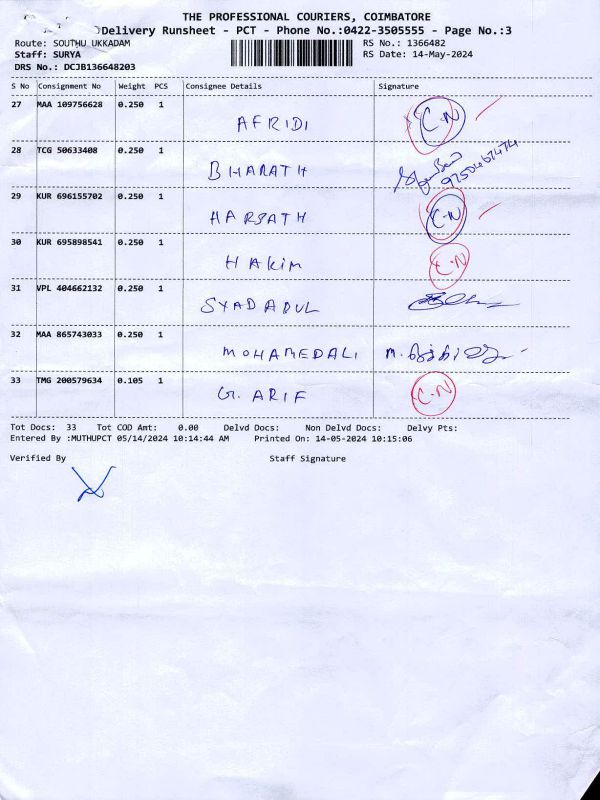 THE PROFESSIONAL COURIERS, COIMBATORE
Delivery Runsheet - PCT - Phone No.:0422-3505555 - Page No.:3
Route: SOUTHU UKKADAM RS No.: 1366482
Staff: SURYA RS Date: 14-May-2024
DRS No.: DCJB136648203
S No Consignment No Weight PCS Consignee Details Signature
27 MAA 109756628 0.250 1 AFRIDI C-N
28 TCG 50633408 0.250 1 BHARATH
29 KUR 696155702 0.250 1 HARSATH C-N
30 KUR 695898541 0.250 1 HAKIM C-N
31 VPL 404662132 0.250 1 SYADADUL
32 MAA 865743033 0.250 1 MOHAMEDALI M.
33 TMG 200579634 0.105 1 G. ARIF C-N
Tot Docs: 33 Tot COD Amt: 0.00 Delvd Docs: Non Delvd Docs: Delvy Pts:
Entered By :MUTHUPCT 05/14/2024 10:14:44 AM Printed On: 14-05-2024 10:15:06
Verified By Staff Signature